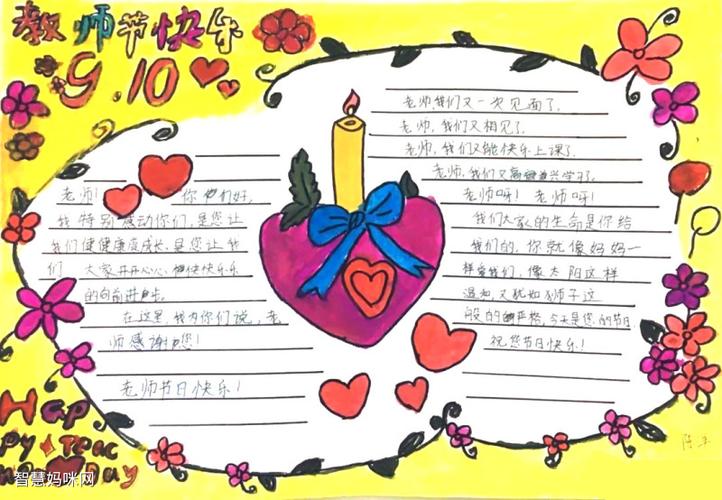 教师节快乐
9.10
老师! 你们好,
我特别感动你们,是您让
我们健健康康成长,是您让我
们 大家开开心心,快快乐乐
的向前进步。
在这里,我为你们说,老
师感谢您!
老师节日快乐!
老师,我们又一次见面了,
老师,我们又相见了,
老师,我们又能快乐上课了,
老师,我们又高高兴兴学习了,
老师呀!老师呀!
我们大家的生命是你给
我们的,你就像妈妈一
样爱我们,像太阳这样
温和,又犹如狮子这
般的严格,今天是您的节日,
祝您节日快乐!
Hap
py teac
her Day
陈
智慧妈咪网